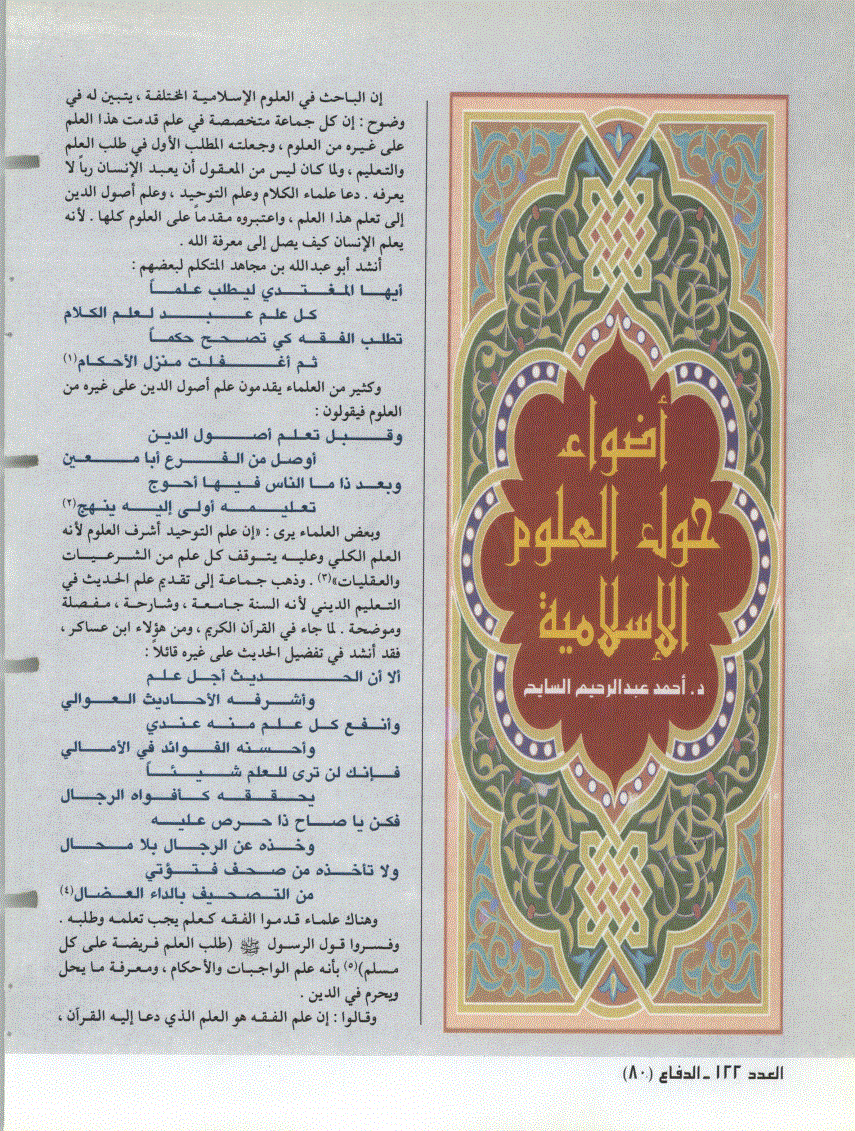 أضواء
حول العلوم
الإسلامية
د. أحمد عبدالرحيم السايح
إن الباحث في العلوم الإسلامية المختلفة ، يتبين له في
وضوح : إن كل جماعة متخصصة في علم قدمت هذا العلم
على غيره من العلوم ، وجعلته المطلب الأول في طلب العلم
والتعليم ، ولما كان ليس من المعقول أن يعبد الإنسان رباً لا
يعرفه . دعا علماء الكلام وعلم التوحيد ، وعلم أصول الدين
إلى تعلم هذا العلم ، واعتبروه مقدماً على العلوم كلها . لأنه
يعلم الإنسان كيف يصل إلى معرفة الله .
أنشد أبو عبدالله بن مجاهد المتكلم لبعضهم :
أيها المغتدي ليطلب علماً
كل علم عبد لعلم الكلام
تطلب الفقه كي تصحح حكماً
ثم أغفلت منزل الأحكام(١)
وكثير من العلماء يقدمون علم أصول الدين على غيره من
العلوم فيقولون :
وقبل تعلم أصول الدين
أوصل من الفرع أبا معين
وبعد ذا ما الناس فيها أحوج
تعليمه أولى إليه ينهج(٢)
وبعض العلماء يرى : «إن علم التوحيد أشرف العلوم لأنه
العلم الكلي وعليه يتوقف كل علم من الشرعيات
والعقليات»(٣) . وذهب جماعة إلى تقديم علم الحديث في
التعليم الديني لأنه السنة جامعة ، وشارحة ، مفصلة
وموضحة . لما جاء في القرآن الكريم ، ومن هؤلاء ابن عساكر ،
فقد أنشد في تفضيل الحديث على غيره قائلاً :
ألا أن الحديث أجل علم
وأشرفه الأحاديث العوالي
وأنفع كل علم منه عندي
وأحسنه الفوائد في الأمالي
فإنك لن ترى للعلم شيئاً
يحققه كأفواه الرجال
فكن يا صاح ذا حرص عليه
وخذه عن الرجال بلا محال
ولا تأخذه من صحف فتؤتي
من التصحيف بالداء العضال(٤)
وهناك علماء قدموا الفقه كعلم يجب تعلمه وطلبه .
وفسروا قول الرسول ﷺ (طلب العلم فريضة على كل
مسلم)(٥) بأنه علم الواجبات والأحكام ، ومعرفة ما يحل
ويحرم في الدين .
وقالوا : إن علم الفقه هو العلم الذي دعا إليه القرآن ،
العدد ١٢٢ ـ الدفاع (٨٠)